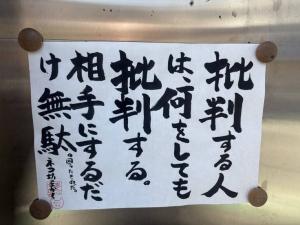 批判する人
は、何をしても
批判する。
相手にするだ
け無駄。